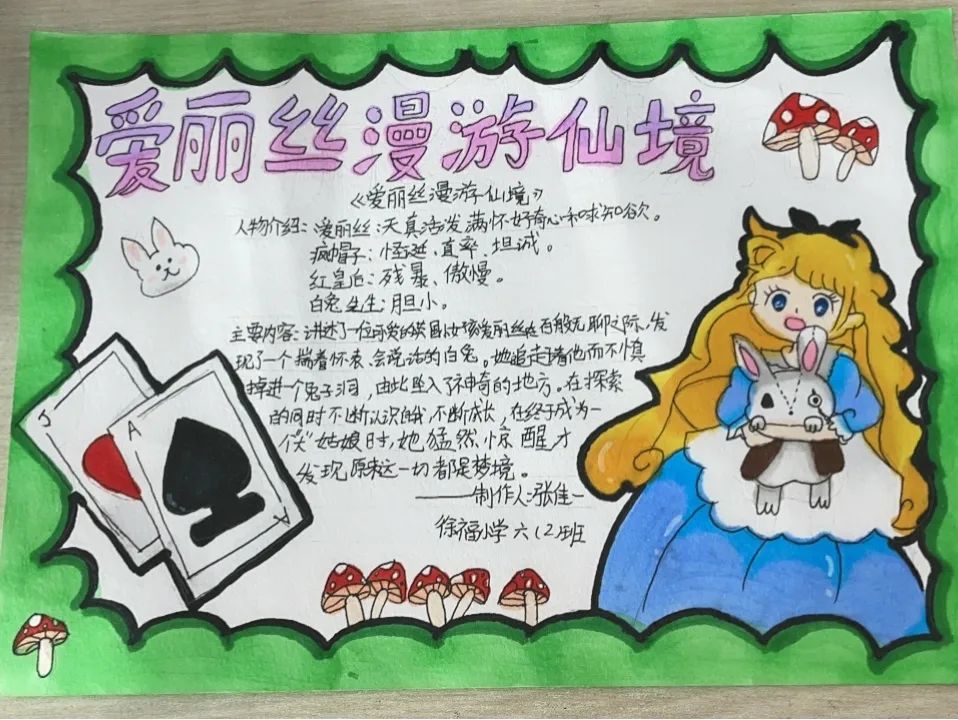 爱丽丝漫游仙境
《爱丽丝漫游仙境》
人物介绍:爱丽丝:天真活泼满怀好奇心和求知欲。
疯帽子:怪诞、直率、坦诚。
红皇后:残暴、傲慢。
白兔先生:胆小。
主要内容:讲述了一位可爱的英国小女孩爱丽丝在百般无聊之际,发
现了一个揣着怀表、会说话的白兔。她追赶着他而不慎
掉进一个兔子洞,由此坠入了神奇的地方。在探索
的同时不断认识自我,不断成长,在终于成为一
个"大"姑娘时,她猛然惊醒才
发现原来这一切都是梦境。
——制作人:张佳一
徐福小学六(2)班
J
A
A